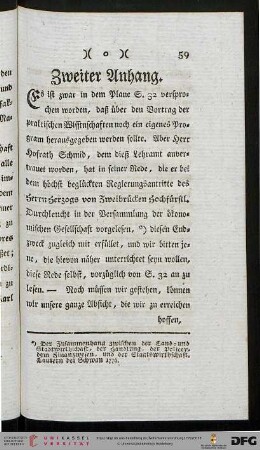 )( o )( 59
Zweiter Anhang.
Es ist zwar in dem Plane S. 32 verspro-
chen worden, daß über den Vortrag der
praktischen Wissenschaften noch ein eigenes Pro-
gram herausgegeben werden solle. Aber Herr
Hofrath Schmid, dem dieß Lehramt anver-
trauet worden, hat in seiner Rede, die er bei
dem höchst beglückten Regierungsantritte des
Herrn Herzogs von Zweibrücken Hochfürstl.
Durchleucht in der Versammlung der ökono-
mischen Gesellschaft vorgelesen, *) diesen End-
zweck zugleich mit erfüllet, und wir bitten jene
ne, die hievon näher unterrichtet seyn wollen,
diese Rede selbst, vorzüglich von S. 32 an zu
lesen. — Noch müssen wir gestehen, können
wir unsere ganze Absicht, die wir zu erreichen
hoffen,
*) Der Zusammenhang zwischen der Land- und
Stadtwirthschaft, der Handlung, der Policey,
dem Finanzwesen, und der Staatswirthschaft.
Lautern bei Schwan 1776.
UNIKASSEL
VERSITÄT
DFG